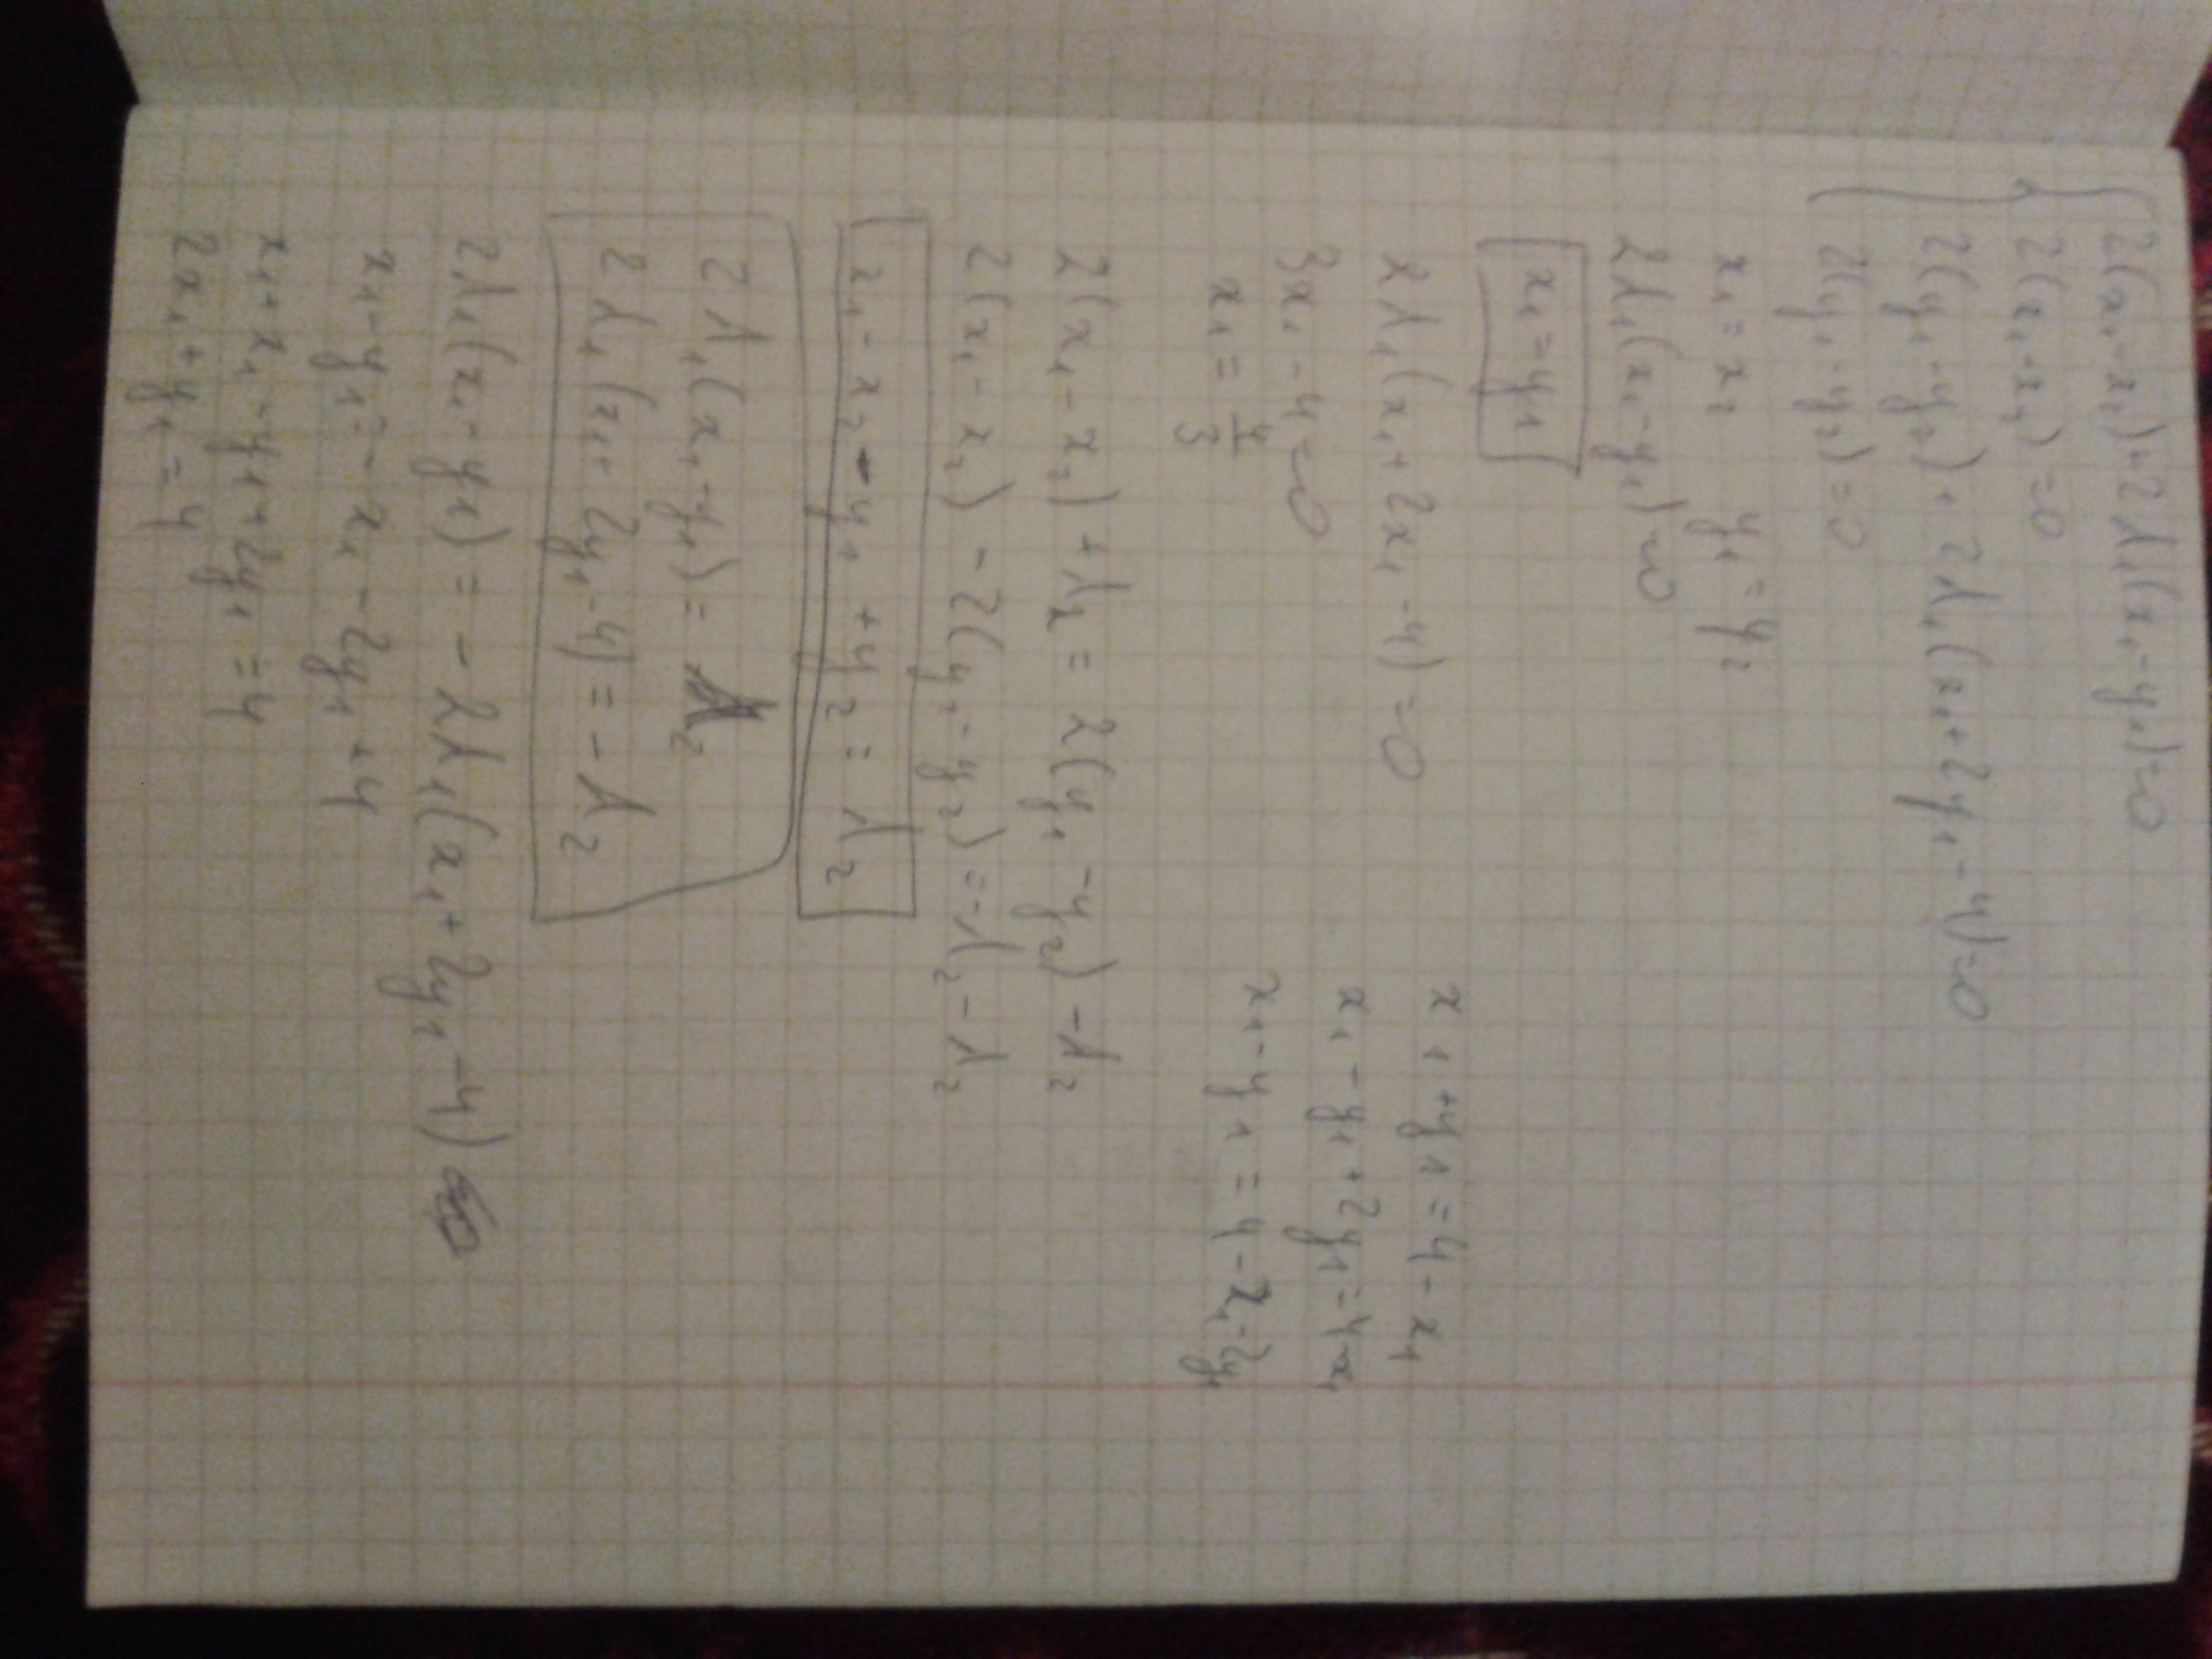 2(x₁-x₂)+2λ₁(x₁-y₁)=0
2(x₁-x₂)=0
2(y₁-y₂)+2λ₁(x₁+2y₁-4)=0
2(y₁-y₂)=0
x₁=x₂ y₁=y₂
2λ₁(x₁-y₁)=0
x₁=y₁
2λ₁(x₁+2x₁-4)=0
3x₁-4=0
x₁=4/3
x₁+y₁=4-x₁
x₁-y₁+2y₁=4-x₁
x₁-y₁=4-x₁-2y₁
2(x₁-x₂)+λ₂=2(y₁-y₂)-λ₂
2(x₁-x₂)-2(y₁-y₂)=-λ₂-λ₂
x₁-x₂-y₁+y₂=λ₂
2λ₁(x₁-y₁)=λ₂
2λ₁(x₁+2y₁-4)=-λ₂
2λ₁(x₁-y₁)=-2λ₁(x₁+2y₁-4)
x₁-y₁=-x₁-2y₁+4
x₁+x₁-y₁+2y₁=4
2x₁+y₁=4